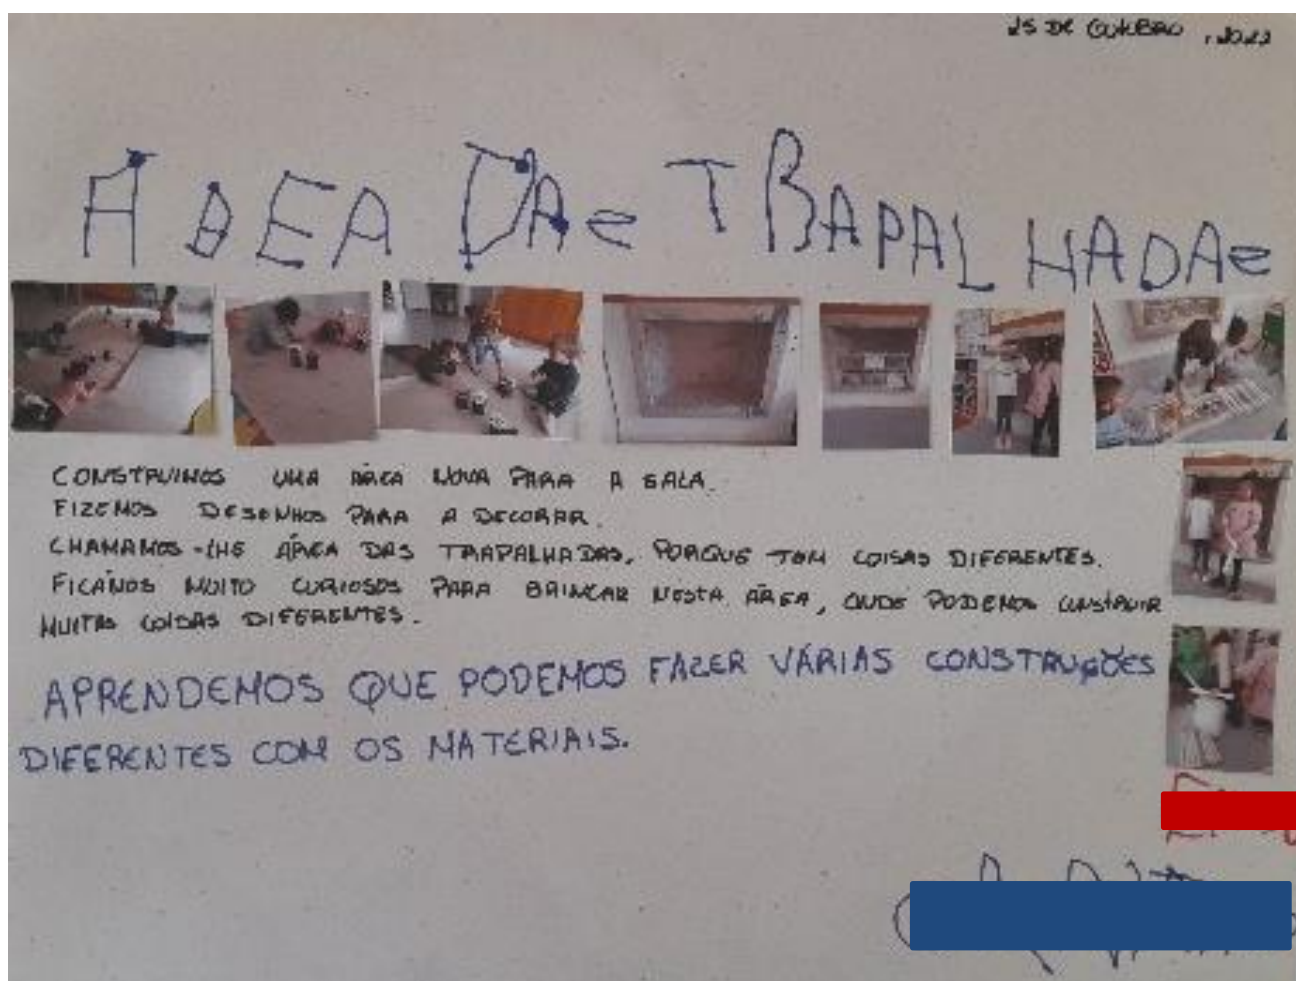 25 DE OUTUBRO, 2022
ÁREA DAS TRAPALHADAS
CONSTRUIMOS UMA ÁREA NOVA PARA A SALA.
FIZEMOS DESENHOS PARA A DECORAR.
CHAMAMOS-LHE ÁREA DAS TRAPALHADAS, PORQUE TEM COISAS DIFERENTES.
FICÁMOS MUITO CURIOSOS PARA BRINCAR NESTA ÁREA, ONDE PODEMOS CONSTRUIR
MUITAS COISAS DIFERENTES.
APRENDEMOS QUE PODEMOS FAZER VÁRIAS CONSTRUÇÕES
DIFERENTES COM OS MATERIAIS.